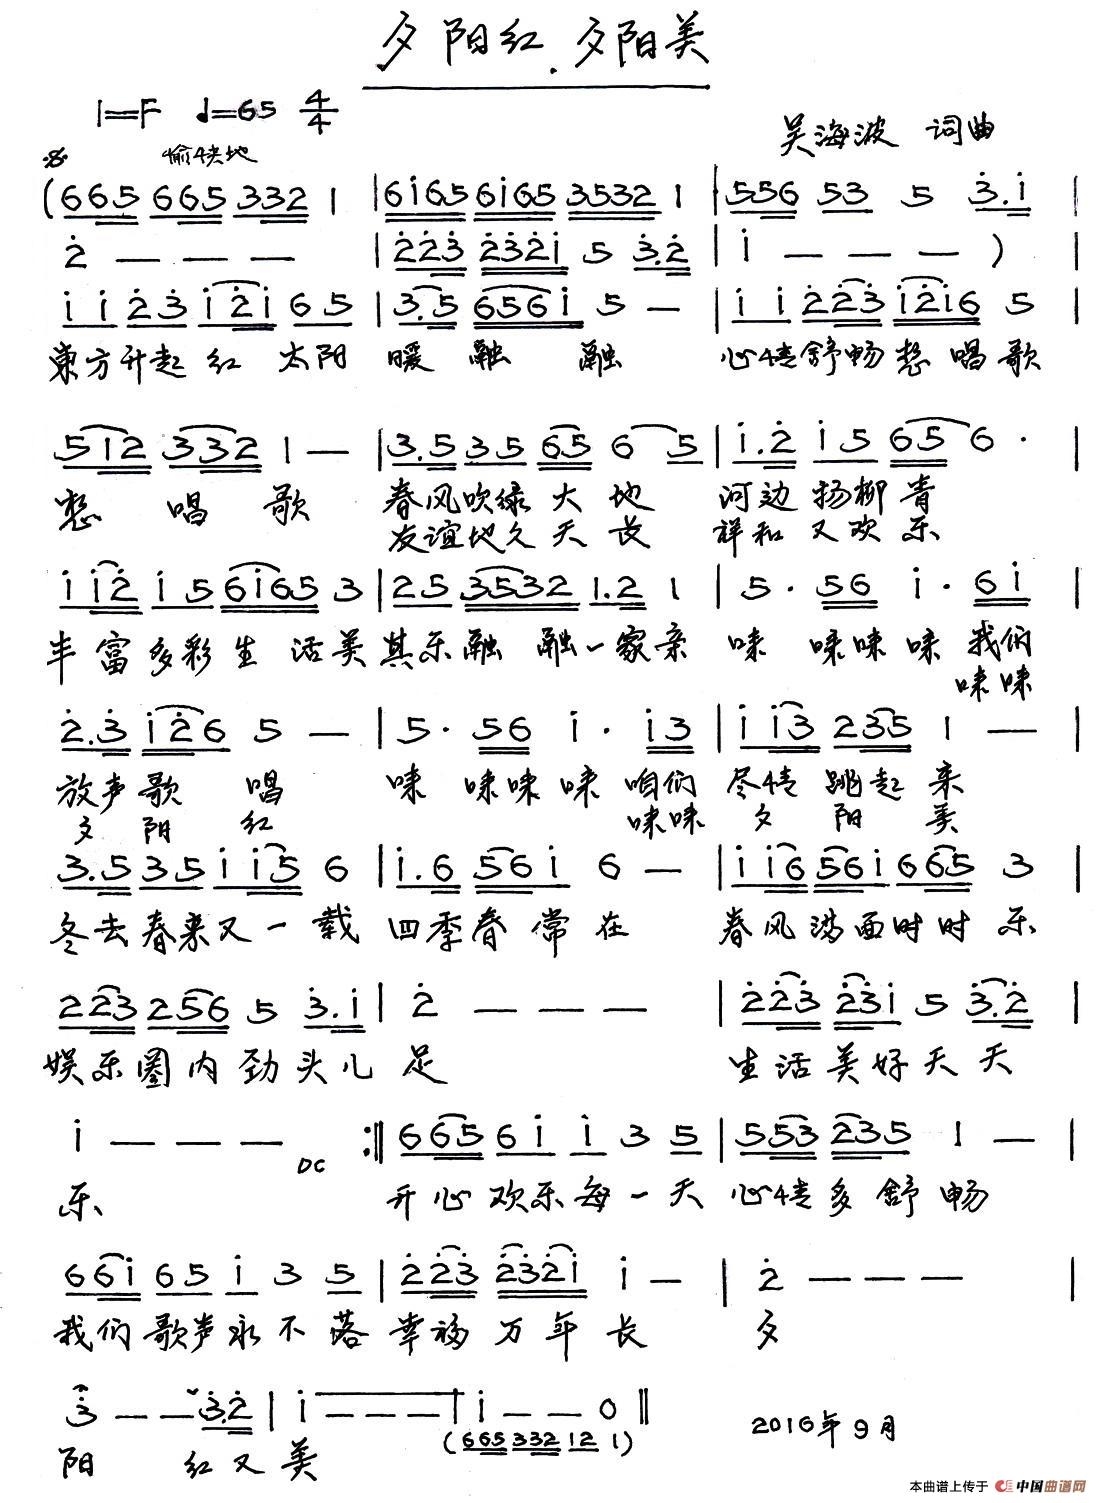 夕阳红.夕阳美
1=F ♩=65 4/4
吴海波 词曲
愉快地
(665 665 332 1 | 6i65 6i65 3532 1 | 556 53 5 3.i |
2 — — — | 223 2321 5 3.2 | i — — — ) |
i i 2 3 i2i 6 5 | 3.5 656i 5 — | i i 223 i2i6 5 |
東方升起红 太阳 暖 融 融 心情舒畅想 唱歌
512 332 1 — | 3.5 35 65 6 5 | i.2 i5 65 6 · |
想 唱 歌 春风吹绿 大 地 河边 扬柳 青
友谊地久 天 长 祥和 又欢 乐
i i2 i5 6i65 3 | 25 3532 1.2 1 | 5 · 56 i · 6i |
丰富多彩生 活美 其乐融 融一家亲 哚 哚哚哚 我们
哚哚
2.3 i26 5 — | 5 · 56 i · i3 | i i3 235 1 — |
放声歌 唱 哚 哚哚 哚 咱们 尽情 跳起 来
夕 阳 红 哚哚 夕 阳 美
3.5 35 i i5 6 | i.6 56i 6 — | i i6 56i 665 3 |
冬去春来又一载 四季春 常 在 春风满面时时 乐
223 256 5 3.i | 2 — — — | 223 23i 5 3.2 |
娱乐圈内劲头儿 足 生活美好天天
i — — — DC :‖ 665 6i i 3 5 | 553 235 1 — |
乐 开心欢乐每一天 心情多舒畅
66i 65 i 3 5 | 223 232i i — | 2 — — — |
我们歌声永不落 幸福万年长 夕
3 — — 3.2 | i — — — | i — — 0 ‖
(665 332 12 1)
阳 红又美
2016年9月
本曲谱上传于 中国曲谱网